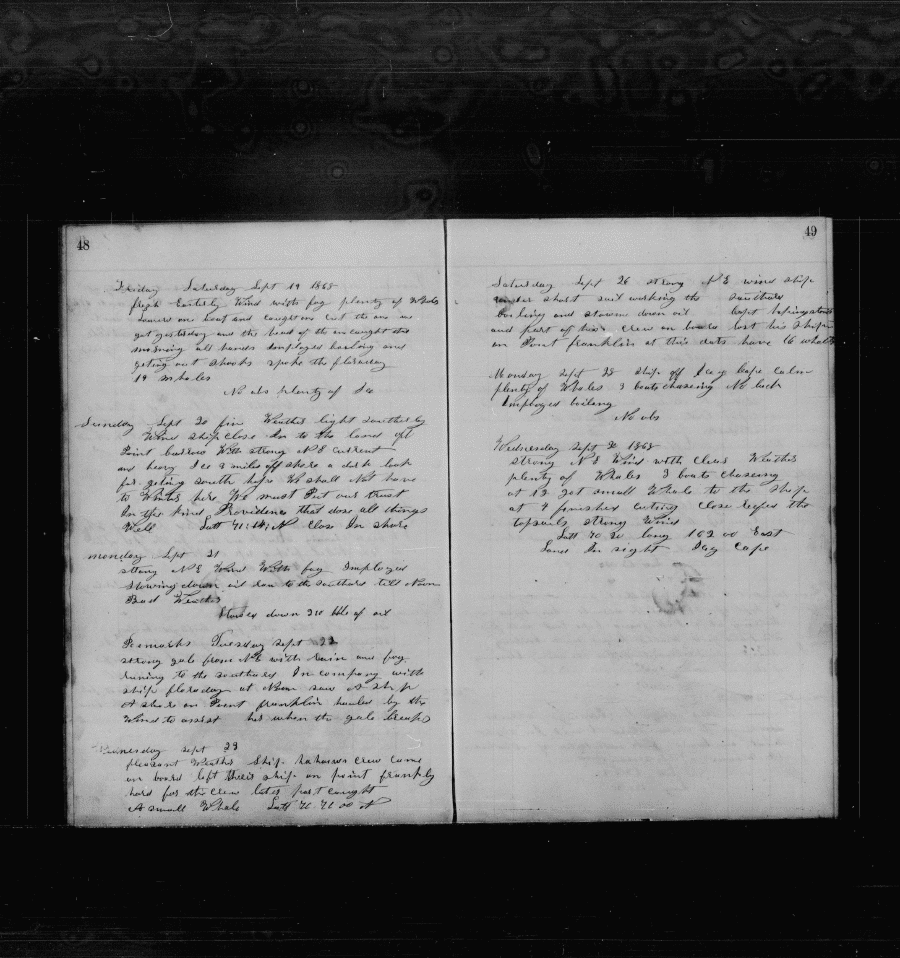 48
Friday Saturday Sept 19 1868
fresh Easterly Wind with fog plenty of Whales
lowerd one boat and caught one Cut the one we
got yesterday and the head of the one caught this
morning all hands Employed boiling and
geting out shooks spoke the
19 whales
No obs plenty of Ice
Sunday Sept 20 fine Weather light Southerly
Wind ship close In to the land off
Point barrow With strong N E current
and heavy Ice 2 miles off shore a dark look
for geting south hope We shall Not have
to Winter here We must Put our trust
In the kind Providence that dose all things
Well Latt 71: N close In shore
monday Sept 21
strong N E Wind With fog Imployed
stowing down oil ran to the southard till Noon
Bad Weather
Stowed down bbls of oil
Remarks Tuesday Sept 22
strong gale from N E with rain and fog
runing to the southard In company with
ship at Noon saw A ship
A shore on Point franklin hauled by the
Wind to assist her when the gale breaks
Wednesday Sept 23
pleasant Weather Ship crew came
on board left their ship on point frankly
hard for the crew later part caught
A small Whale Latt 70. 00 N
49
Saturday Sept 26 strong N E wind ship
under short sail working to the Southard
boiling and stowin down oil Capt
and part of his crew on board lost his ship
on Point franklin at this date have 16 whales
Monday Sept 28 ship off Icy Cape Calm
plenty of Whales 3 boats chaseing No luck
Imployed boiling
No obs
Wednesday Sept 30 1868
strong N E Wind with clear Weather
plenty of Whales 3 boats chaseing
at 12 got small Whale to the ship
at 9 finished cuting Close reefed the
topsails strong Wind
Latt 70 20 long 162 00 East
Land In sight Icy Cape